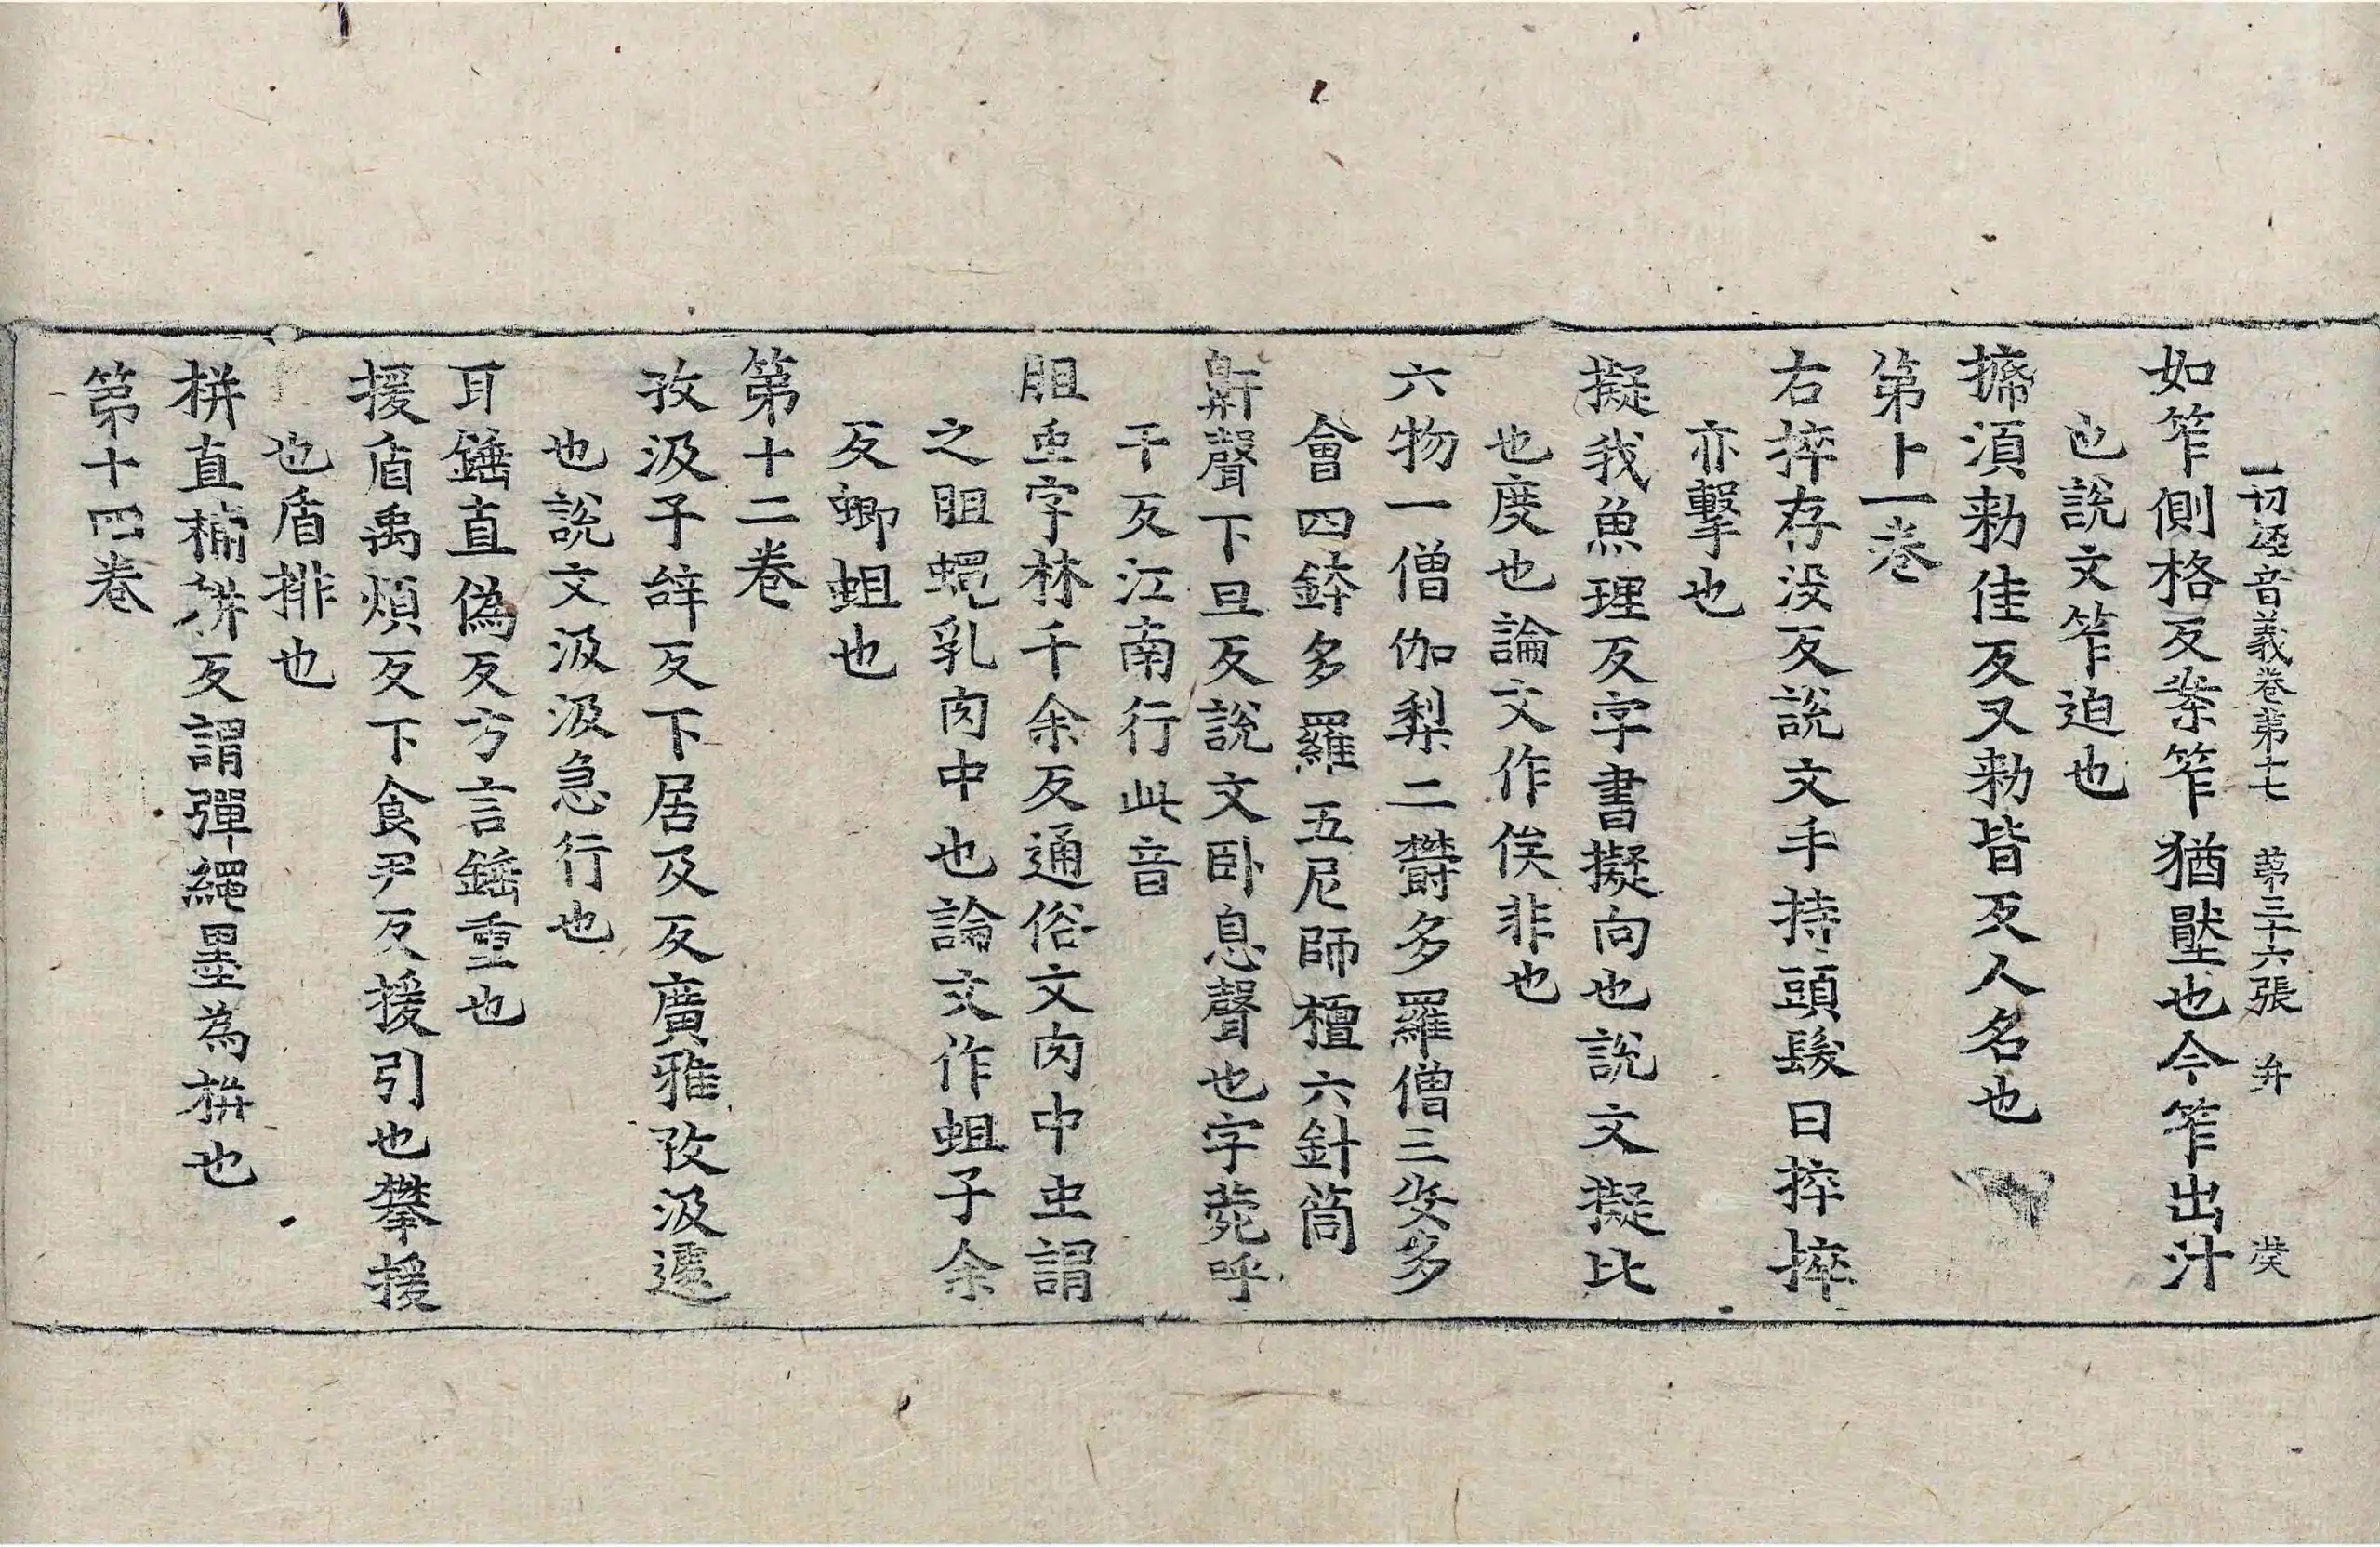 一切經音義卷第十七 第三十六張 弁 癸
如笮側格反案笮猶壓也今笮出汁
也說文笮迫也
揥湏勑佳反又勑皆反人名也
第十一卷
右捽存没反說文手持頭髮曰捽捽
亦擊也
擬我魚理反字書擬向也說文擬比
也度也論文作俟非也
六物一僧伽梨二欝多羅僧三安多
會四鉢多羅五尼師檀六針筒
鼾聲下旦反說文卧息聲也字菀呼
干反江南行此音
胆虫字林千余反通俗文肉中虫謂
之胆蠅乳肉中也論文作蛆子余
反蝍蛆也
第十二卷
孜汲子辝反下居及反廣雅孜汲遽
也說文汲汲急行也
耳錘直偽反方言錘重也
援盾禹煩反下食尹反援引也攀援
也盾排也
栟直補耕反謂彈繩墨為栟也
第十四卷